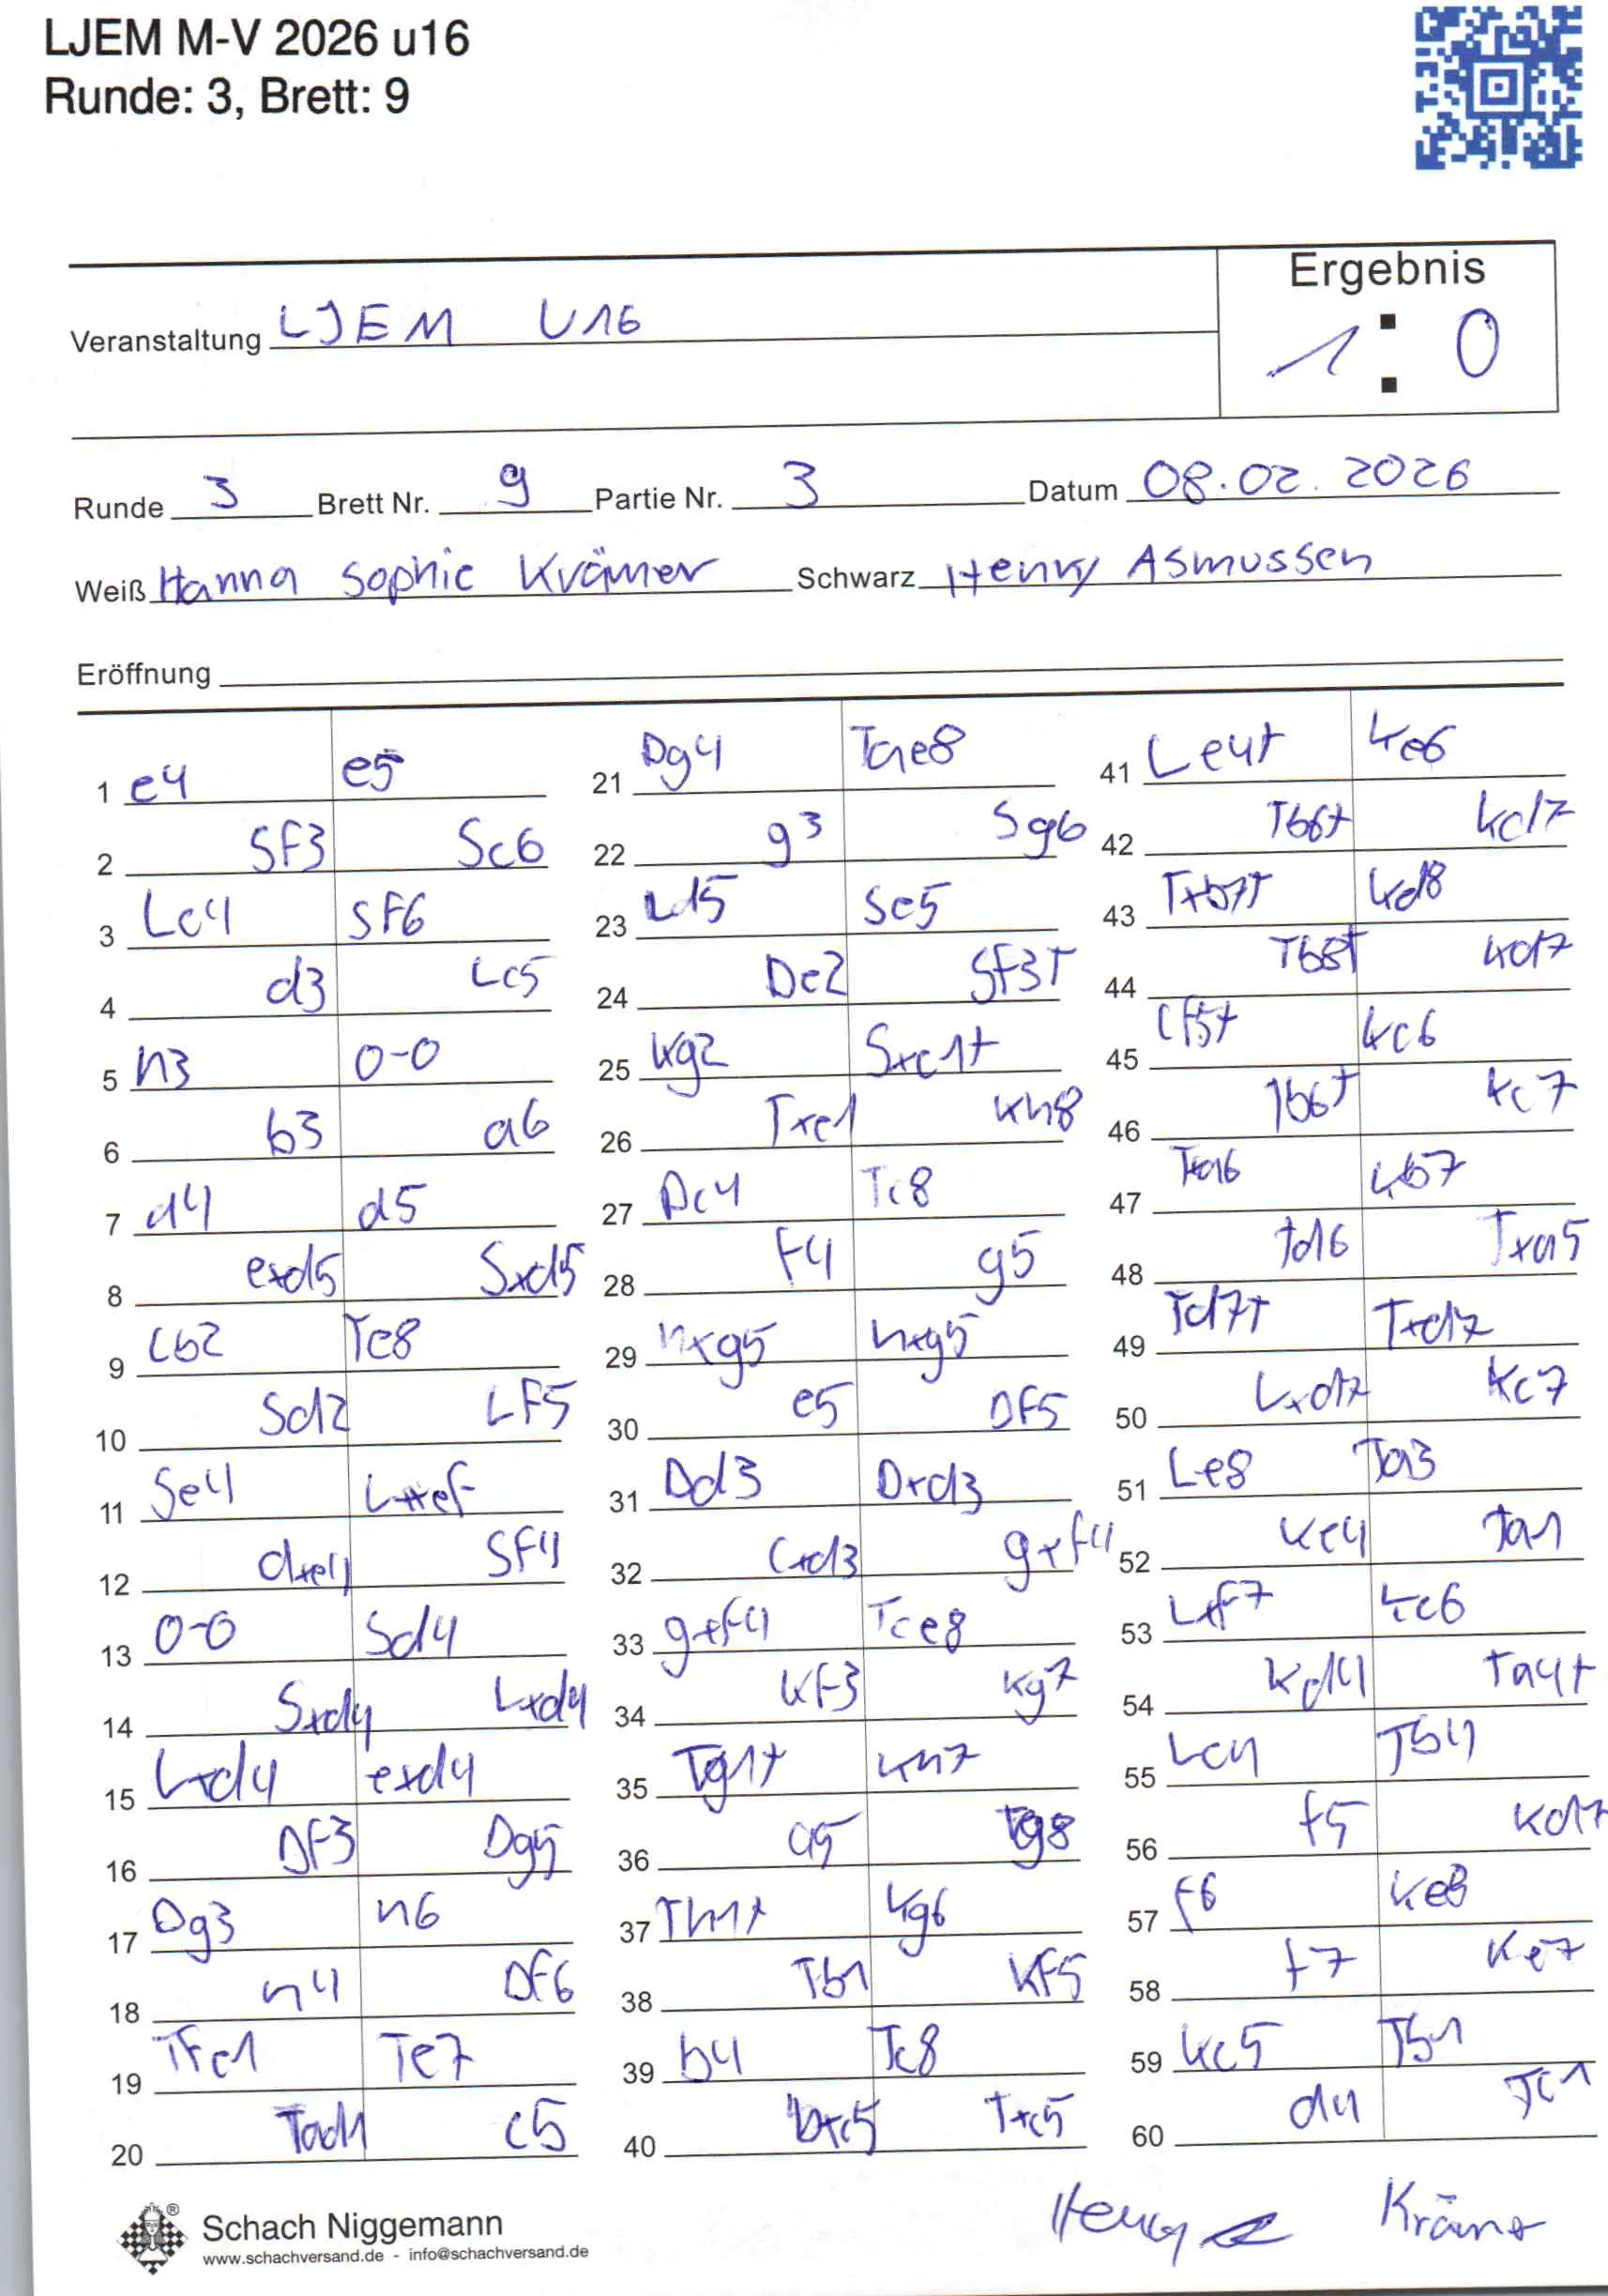 LJEM M-V 2026 u16
Runde: 3, Brett: 9
Ergebnis
Veranstaltung LJEM U16
1 : 0
Runde 3 Brett Nr. 9 Partie Nr. 3 Datum 08.02.2026
Weiß Hanna Sophie Krämer Schwarz Henry Asmussen
Eröffnung
1 e4 e5
2 Sf3 Sc6
3 Lc4 Sf6
4 d3 Lc5
5 h3 0-0
6 b3 a6
7 d4 d5
8 exd5 Sxd5
9 Lb2 Te8
10 Sd2 Lf5
11 Se4
12 dxe4 Sf4
13 0-0 Sd4
14 Sxd4 Lxd4
15 Lxd4 exd4
16 Df3 Dg5
17 Dg3 h6
18 h4 Df6
19 Tfe1 Te7
20 Tad1 c5
21 Dg4 Tae8
22 g3 Sg6
23 Ld5 Se5
24 De2 Sf3+
25 Kg2 Sxe1+
26 Txe1 Kh8
27 Dc4 Tc8
28 f4 g5
29 hxg5 hxg5
30 e5 Df5
31 Dd3 Dxd3
32 cxd3 gxf4
33 gxf4 Tce8
34 Kf3 Kg7
35 Tg1+ Kh7
36 a5 Tg8
37 Th1+ Kg6
38 Tb1 Kf5
39 b4 Tc8
40 bxc5 Txc5
41 Le4+ Ke6
42 Tb6+ Kd7
43 Txb7+ Kd8
44 Tb8+ Kd7
45 Lf5+ Kc6
46 Tb6+ Kc7
47 Txa6 Kb7
48 Td6 Txa5
49 Td7+ Txd7
50 Lxd7 Kc7
51 Le8 Ta3
52 Ke4 Ta1
53 Lxf7 Kc6
54 Kd4 Ta4+
55 Lc4 Tb4
56 f5 Kd7
57 f6 Ke8
58 f7 Ke7
59 Kc5 Tb1
60 d4 Tc1
Schach Niggemann
www.schachversand.de - info@schachversand.de
Henry Krämer